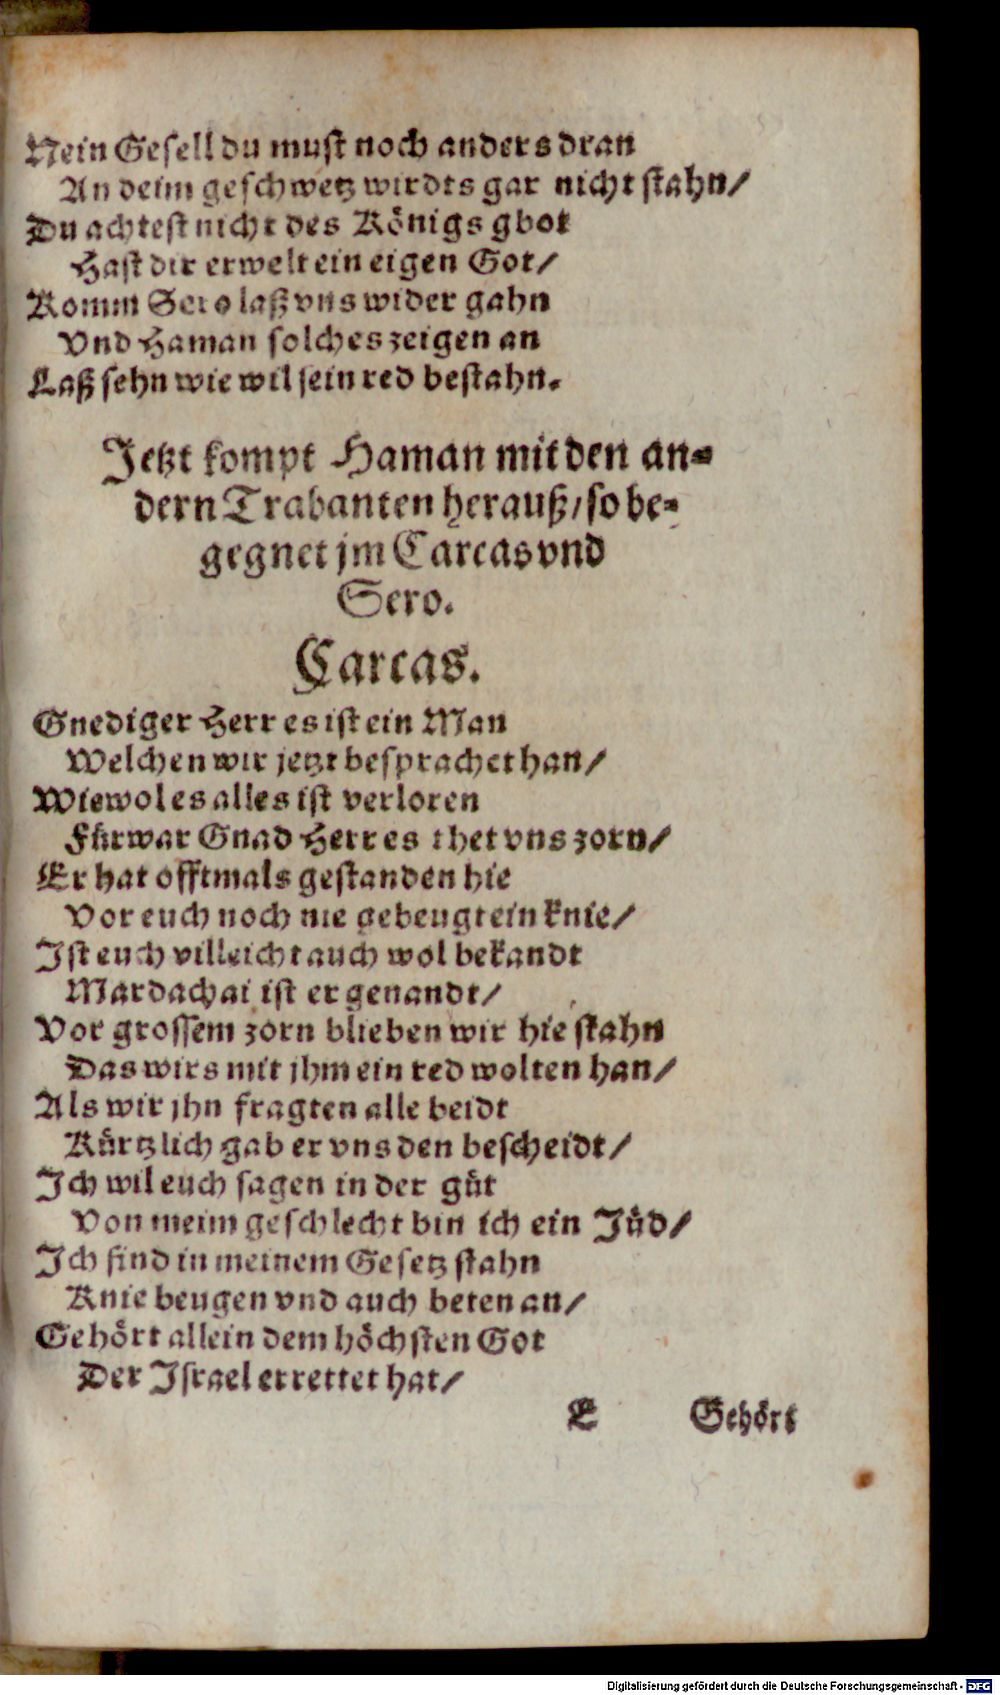 Nein Gesell du must noch anders dran
An deim geschwetz wirdts gar nicht stahn/
Du achtest nicht des Königs gbot
Hast dir erwelt ein eigen Got/
Komm Sero laß vns wider gahn
Vnd Haman solches zeigen an
Laß sehn wie wil sein red bestahn.
Jetzt kompt Haman mit den an-
dern Trabanten herauß/ so be-
gegnet jm Carcas vnd
Sero.
Carcas.
Gnediger Herr es ist ein Man
Welchen wir jetzt besprachet han/
Wiewol es alles ist verloren
Fürwar Gnad Herr es thet vns zorn/
Er hat offtmals gestanden hie
Vor euch noch nie gebeugt ein knie/
Ist euch villeicht auch wol bekandt
Mardachai ist er genandt/
Vor grossem zorn blieben wir hie stahn
Das wirs mit jhm ein red wolten han/
Als wir jhn fragten alle beidt
Kürtzlich gab er vns den bescheidt/
Ich wil euch sagen in der güt
Von meim geschlecht bin ich ein Jüd/
Ich find in meinem Gesetz stahn
Knie beugen vnd auch beten an/
Gehört allein dem höchsten Got
Der Israel errettet hat/
E Gehört
Digitalisierung gefördert durch die Deutsche Forschungsgemeinschaft - DFG